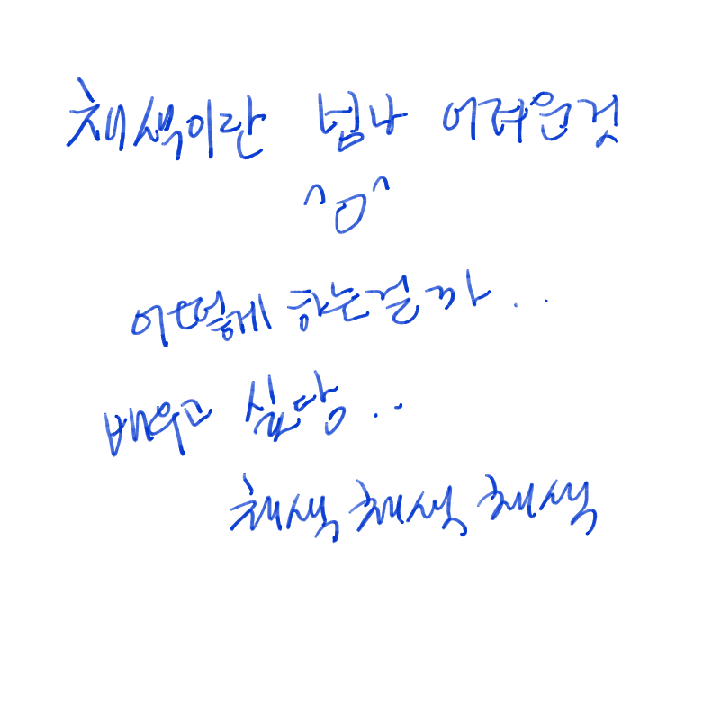 채색이란 넘나 어려운것
^O^
어떻게 하는걸까...
배우고 싶당...
채색채색채색